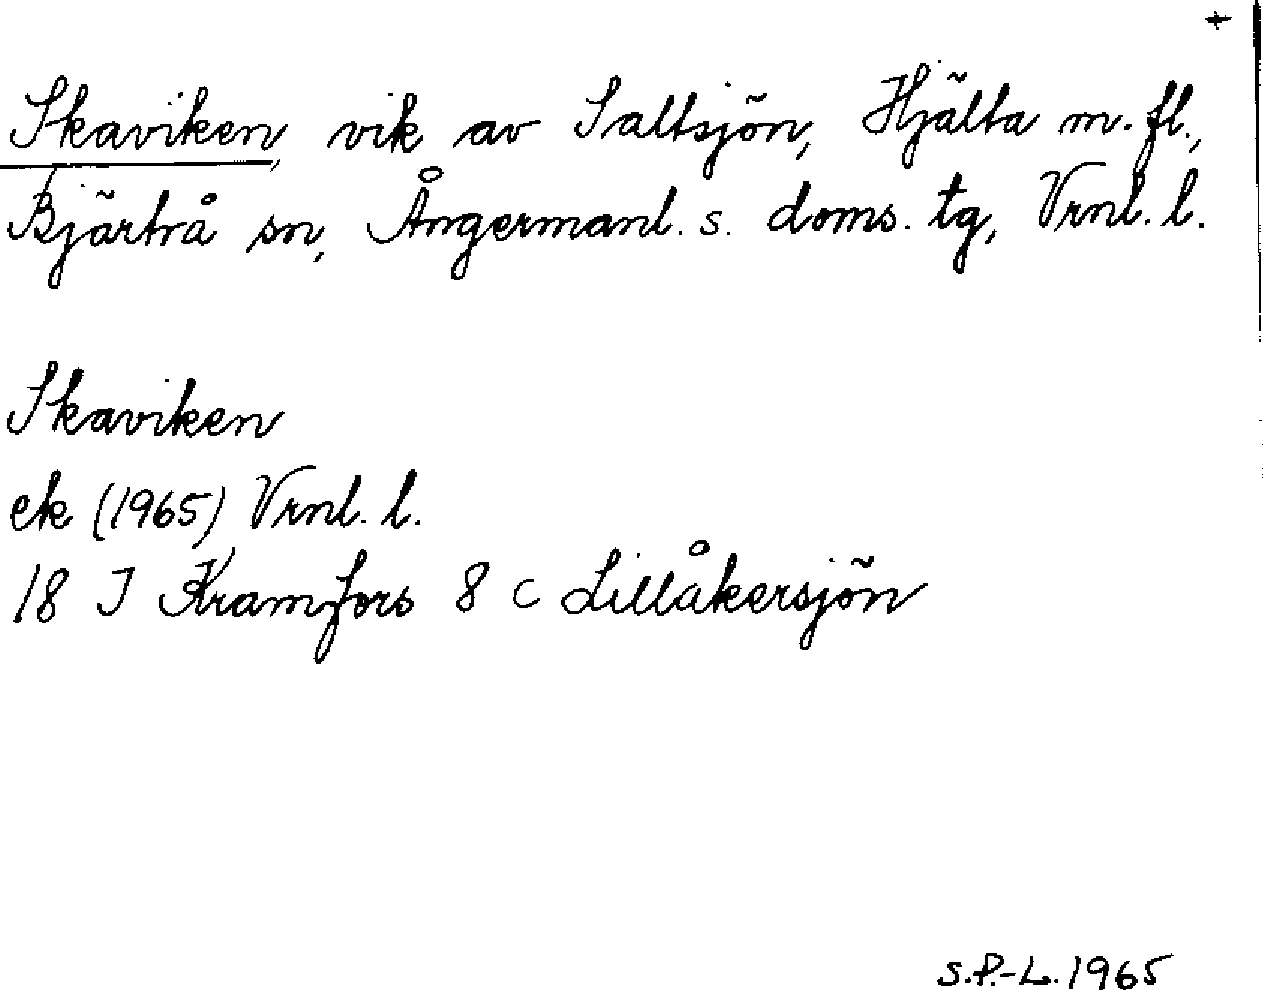 +
Skaviken, vik av Saltsjön, Hjälta m. fl.,
Bjärtrå sn, Ångermanl. s. doms. tg, Vrnl. l.
Skaviken
ek (1965) Vrnl. l.
18 I Kramfors 8 c Lillåkersjön
S.P.-L. 1965